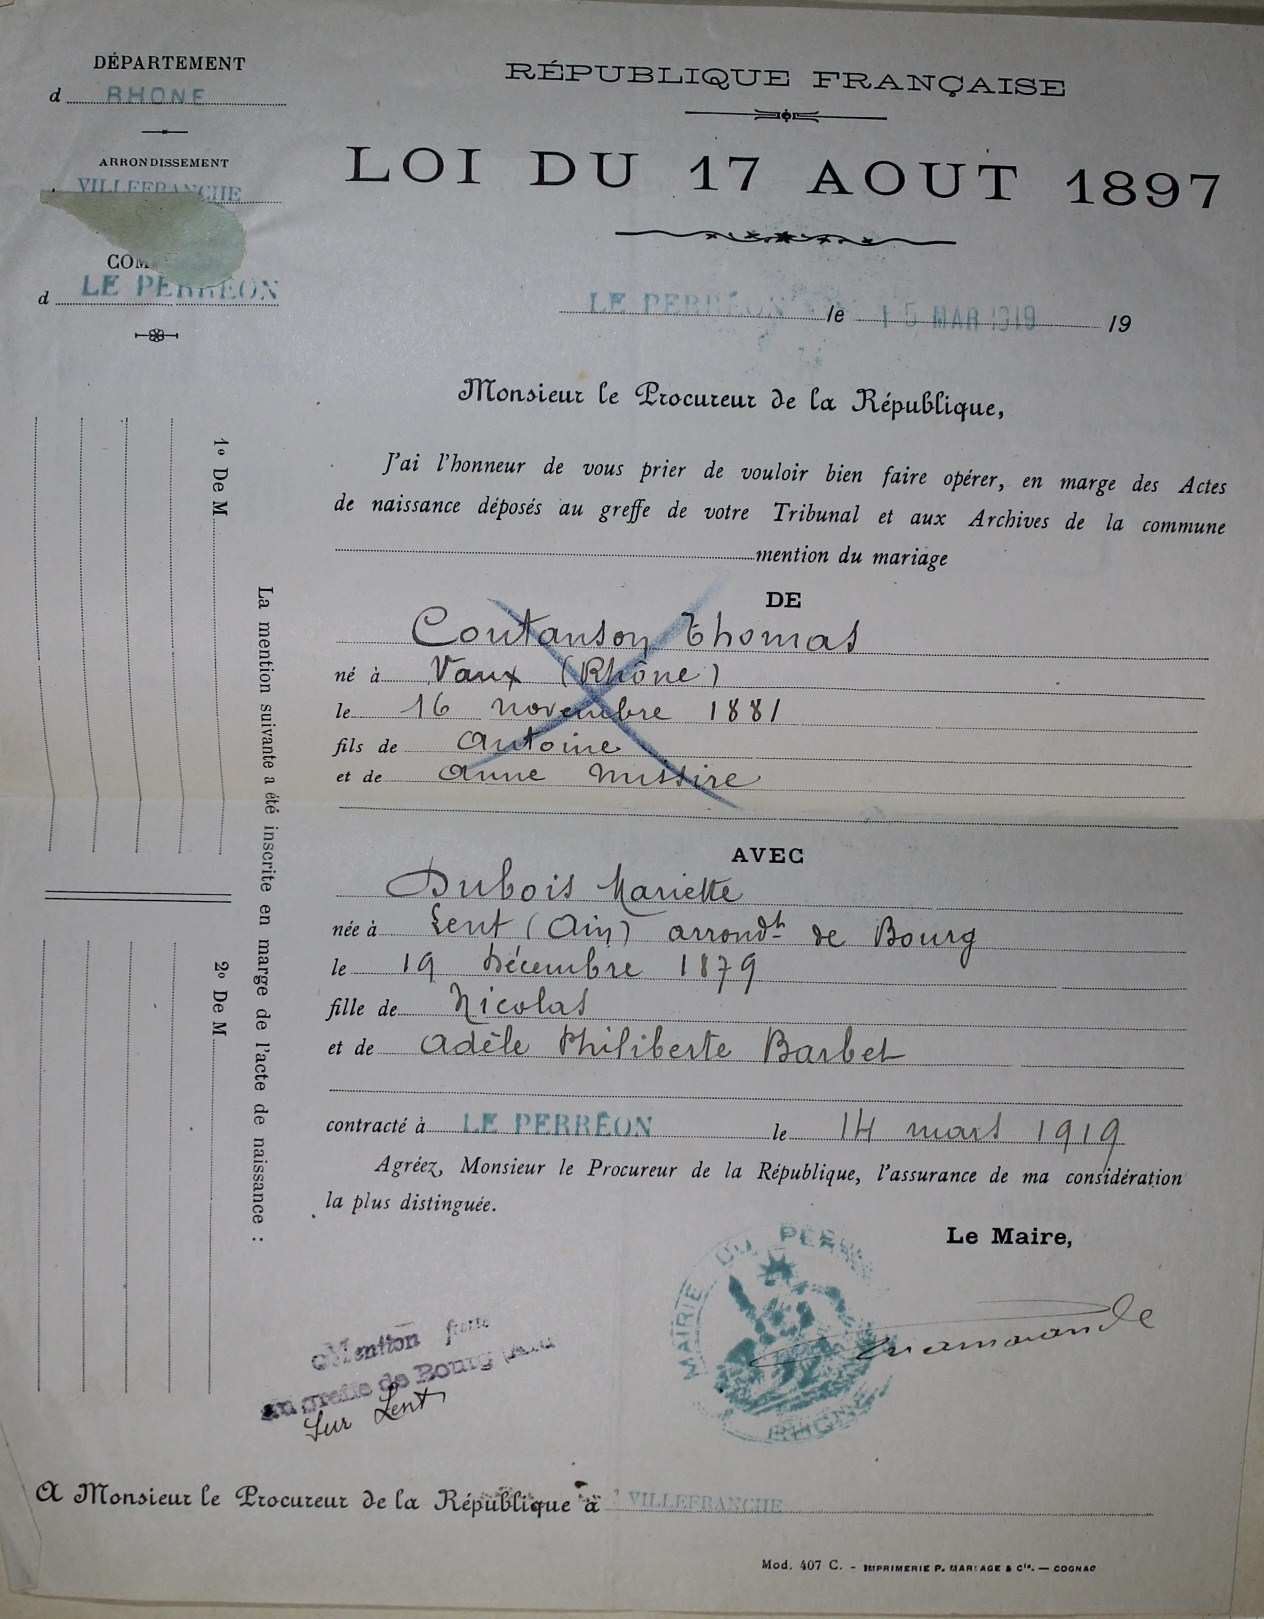 DÉPARTEMENT
d RHONE
ARRONDISSEMENT
VILLEFRANCHE
d LE PERRÉON
RÉPUBLIQUE FRANÇAISE
LOI DU 17 AOUT 1897
LE PERRÉON le 15 MAR 1919 19
Monsieur le Procureur de la République,
J'ai l'honneur de vous prier de vouloir bien faire opérer, en marge des Actes
de naissance déposés au greffe de votre Tribunal et aux Archives de la commune
mention du mariage
DE
Coutanson Thomas
né à Vaux (Rhône)
le 16 novembre 1881
fils de Antoine
et de Anne Missire
AVEC
Dubois Mariette
née à Lent (Ain) arrondt de Bourg
le 19 Décembre 1879
fille de Nicolas
et de Adèle Philiberte Barbet
contracté à LE PERRÉON le 14 mars 1919
Agréez, Monsieur le Procureur de la République, l'assurance de ma considération
la plus distinguée.
Le Maire,
MAIRIE DU PERRÉON
RHONE
Mention faite
au greffe de Bourg (Ain)
sur Lent
La mention suivante a été inscrite en marge de l'acte de naissance :
1º De M
2º De M
A Monsieur le Procureur de la République à VILLEFRANCHE
Mod. 407 C. - IMPRIMERIE P. MARIAGE & Cie. — COGNAC